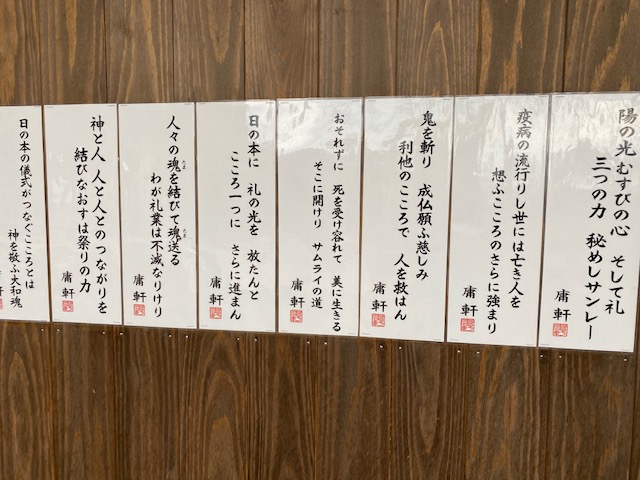 陽の光 むすびの心 そして礼
三つの力 秘めしサンレー
庸軒
疫病の流行りし世には亡き人を
想ふこころのさらに強まり
庸軒
鬼を斬り 成仏願ふ慈しみ
利他のこころで 人を救はん
庸軒
おそれずに 死を受け容れて 美に生きる
そこに開けり サムライの道
庸軒
日の本に 礼の光を 放たんと
こころ一つに さらに進まん
庸軒
人々の魂を結びて魂送る
たま
たま
わが礼業は不滅なりけり
庸軒
神と人 人と人とのつながりを
結びなおすは祭りの力
庸軒
日の本の儀式がつなぐこころとは
神を敬ふ大和魂
庸軒